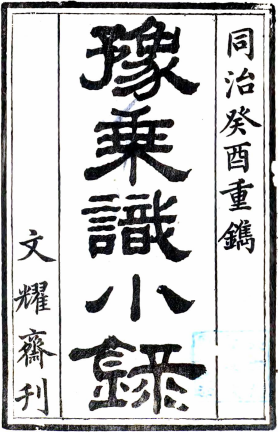 同治癸酉重鐫
豫乗識小録
文燿齋刊